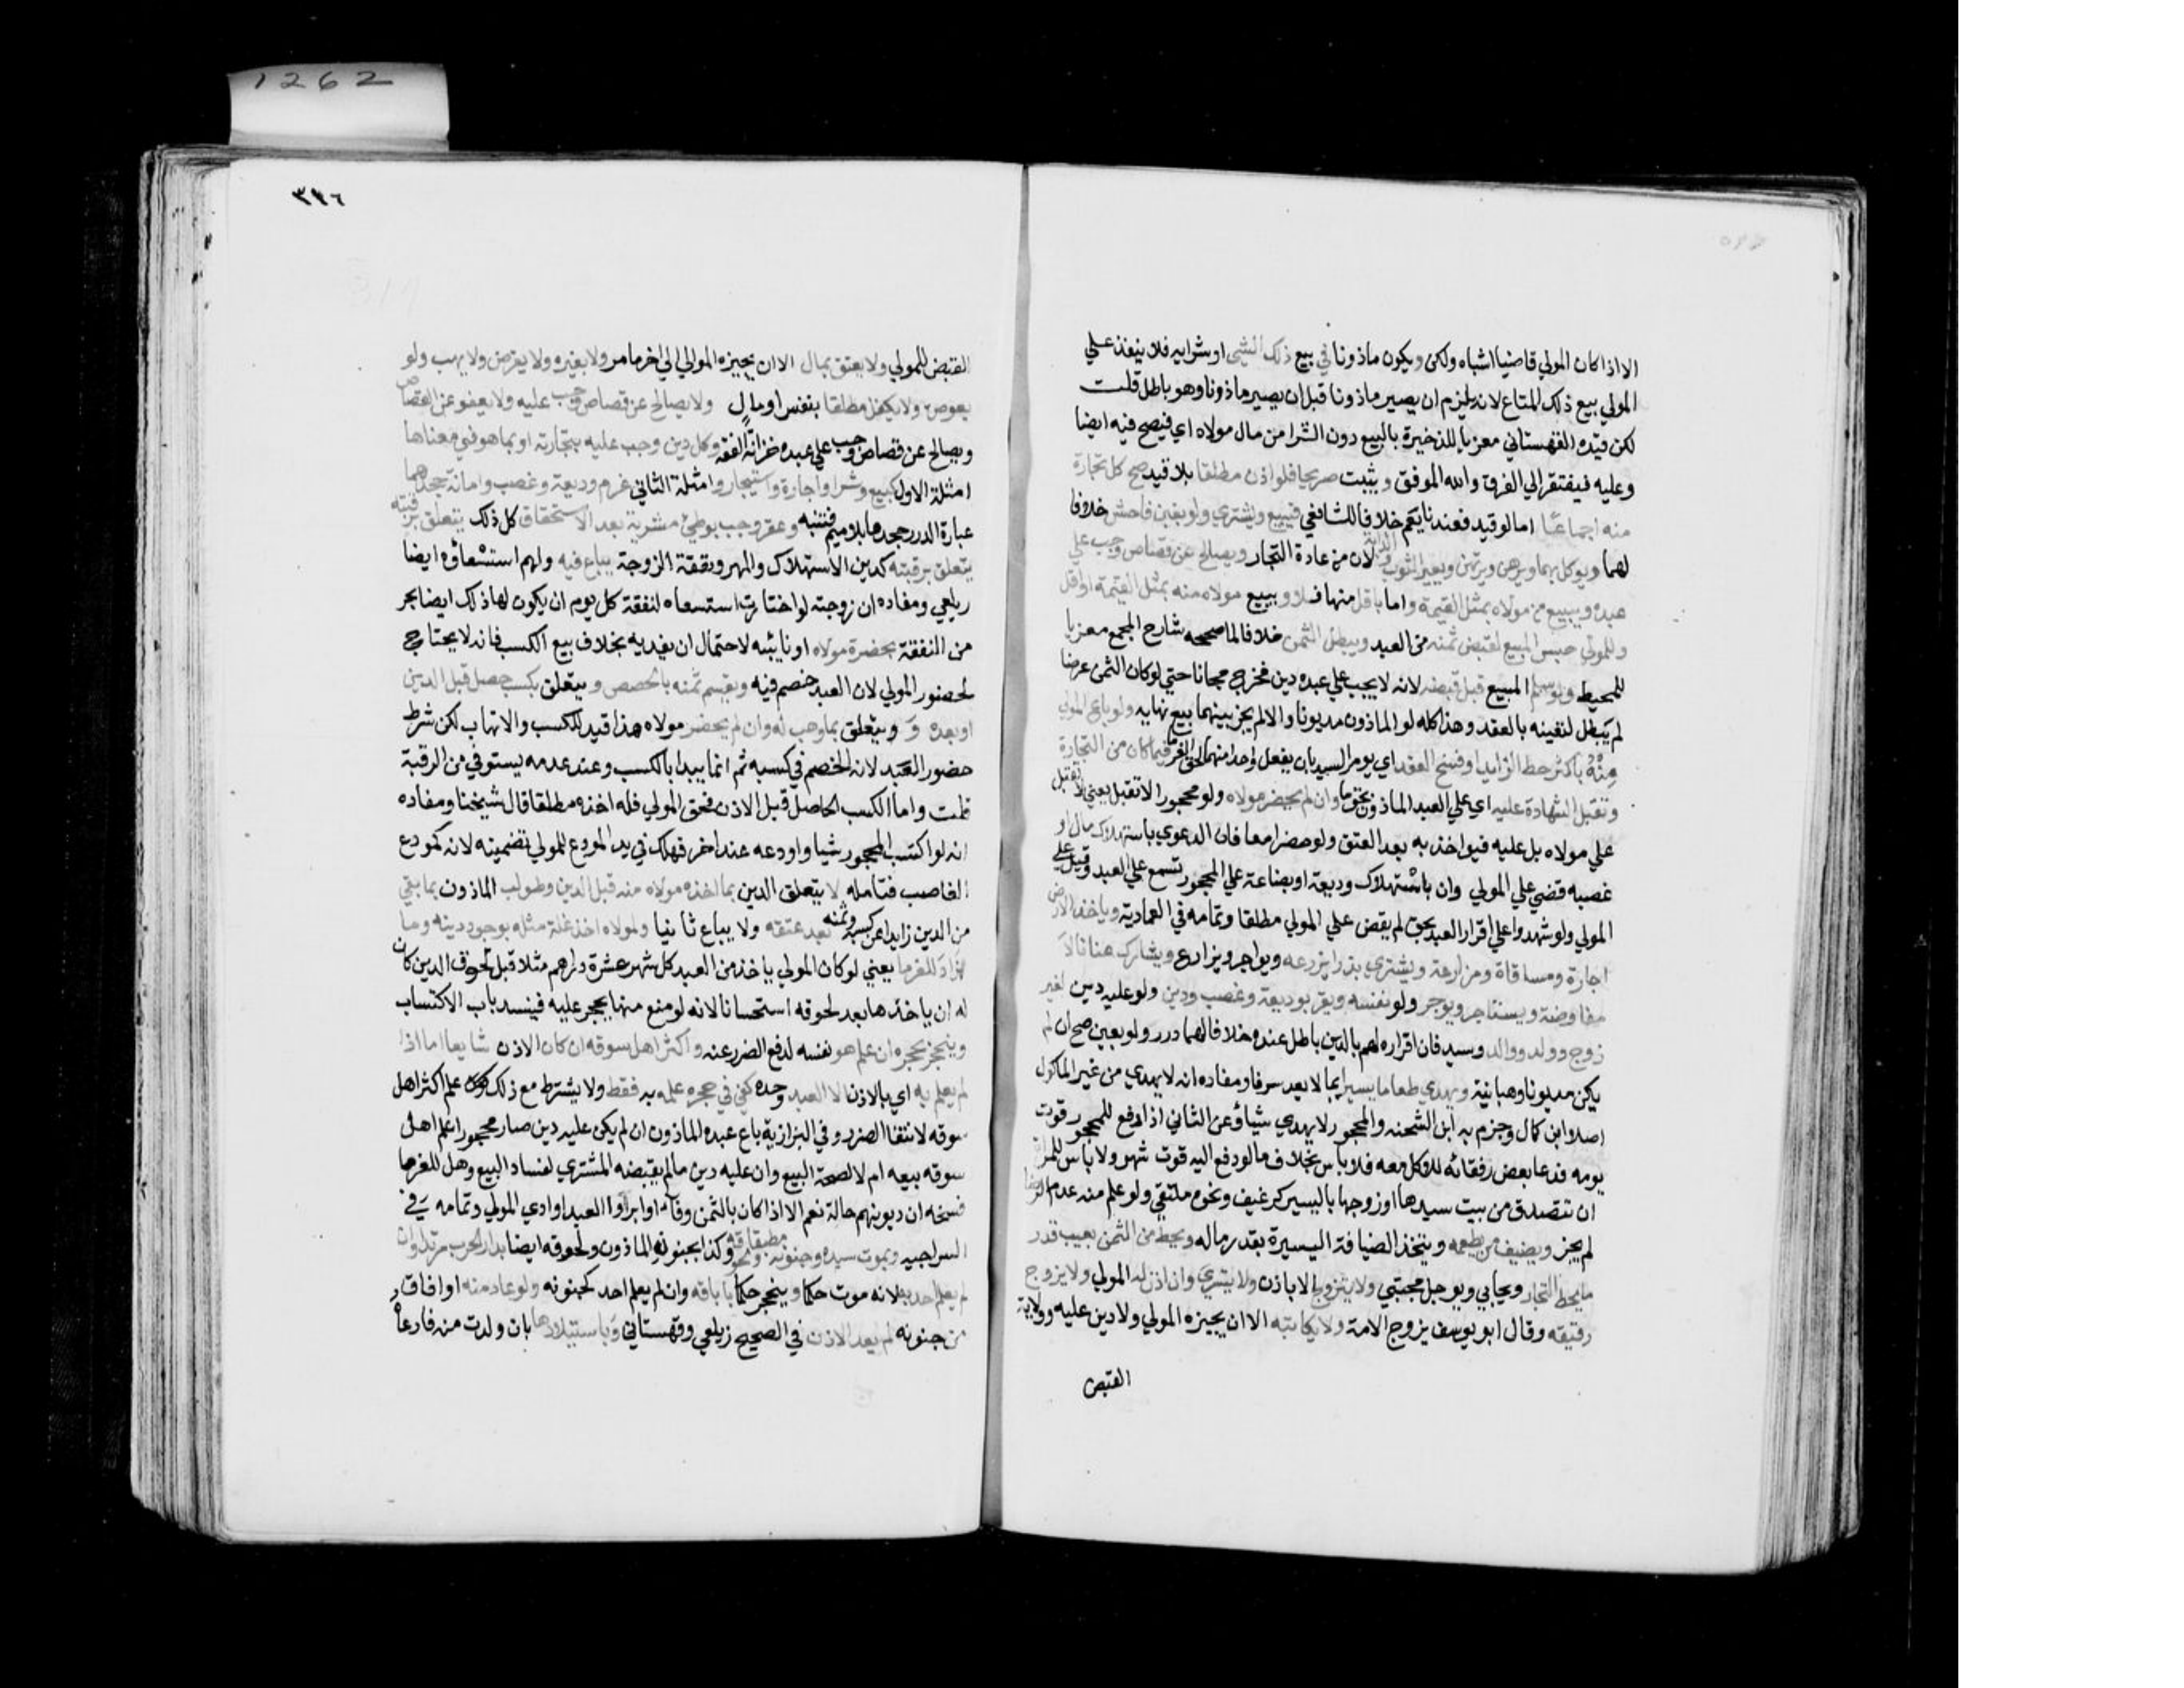 الا اذا كان المولي قاضيا اشباه ولكن ويكون ماذونا في بيع ذلك الشي او شرايه فلا ينفذ علي
المولي بيع ذلك المتاع لانه يلزم ان يصير ماذونا قبل ان يصير ماذونا وهو باطل قلت
لكن قيده القهستاني معزيا للذخيرة بالبيع دون الشرا من مال مولاه اي فيصح فيه ايضا
وعليه فيفتقر الي الفرق والله الموفق ويثبت صريحا فلو اذن مطلقا بلا قيد صح كل تجارة
منه اجماعا اما لو قيد فعندنا يعم خلافا للشافعي فيبيع ويشتري ولو بغبن فاحش خلافا
لهما ويوكل بهما ويرهن ويرتهن ويعير الثوب والدابة لان من عادة التجار ويصالح عن قصاص وجب علي
عبده ويبيع من مولاه بمثل القيمة واما باقل منها فلا ويبيع مولاه منه بمثل القيمة او اقل
وللمولي حبس المبيع لقبض ثمنه من العبد ويبطل الثمن خلافا لما صححه شارح المجمع معزيا
للمحيط ولو سلم المبيع قبل قبضه لانه لا يجب علي عبده دين فخرج مجانا حتي لو كان الثمن عرضا
لم يبطل لتعينه بالعقد وهذا كله لو الماذون مديونا والا لم يجز بينهما بيع نهايه ولو باع المولي
منه باكثر حط الزايد او فسخ العقد اي يومر السيد بان يفعل واحدا منهما لحق الغرما فيما كان من التجارة
وتقبل الشهادة عليه اي علي العبد الماذون بحق ما وان لم يحضر مولاه ولو محجورا لا تقبل يعني لا تقبل
علي مولاه بل عليه فيواخذ به بعد العتق ولو حضرا معا فان الدعوي باستهلاك مال او
غصبه قضي علي المولي وان باستهلاك وديعة او بضاعة علي المحجور تسمع علي العبد وقيل علي
المولي ولو شهدوا علي اقرار العبد بحق لم يقض علي المولي مطلقا وتمامه في العمادية وياخذ الارض
اجارة ومساقاة ومزارعة ويشتري بذرا يزرعه ويواجر ويزارع ويشارك عنانا لا
مفاوضة ويستاجر ويوجر ولو نفسه ويقر بوديعة وغصب ودين ولو عليه دين لغير
زوج وولد ووالد وسيد فان اقراره لهم بالدين باطل عنده خلافا لهما درر ولو بعين صح ان لم
يكن مديونا وهبانية ويهدي طعاما يسيرا بما لا يعد سرفا ومفاده انه لا يهدي من غير الماكول
اصلا ابن كمال وجزم به ابن الشحنه والمحجور لا يهدي شياً وعن الثاني اذا دفع للمحجور قوت
يومه فدعا بعض رفقائه للاكل معه فلا باس بخلاف ما لو دفع اليه قوت شهر ولا باس للمراة
ان تتصدق من بيت سيدها او زوجها باليسير كرغيف ونحوه ملتقي ولو علم منه عدم الرضا
لم يجز ويضيف من يطعمه ويتخذ الضيافة اليسيرة بقدر ماله ويحط من الثمن بعيب قدر
ما يحط التجار ويحابي ويوجل مجتبي ولا يتزوج الا باذن ولا يتسري وان اذن له المولي ولا يزوج
رقيقه وقال ابو يوسف يزوج الامة ولا يكاتبه الا ان يجيزه المولي ولا دين عليه وولاية
القبض
٣٧٦
القبض للمولي ولا يعتق بمال الا ان يجيزه المولي الي اخر ما مر ولا بغيره ولا يقرض ولا يهب ولو
بعوض ولا يكفل مطلقا بنفس او مال ولا يصالح عن قصاص وجب عليه ولا يعفو عن القصاص
ويصالح عن قصاص وجب علي عبده خزانة الفقه وكل دين وجب عليه بتجارته او بما هو في معناها
امثلة الاول كبيع وشرا واجارة واستيجار وامثلة الثاني غرم وديعة وغصب وامانة جحدهما
عبارة الدرر جحدها بلا ميم فتنبه وعقر وجب بوطئ مشرية بعد الاستحقاق كل ذلك يتعلق برقبته
يتعلق برقبته كدين الاستهلاك والمهر ونفقة الزوجة يباع فيه ولهم استسعاؤه ايضا
زيلعي ومفاده ان زوجته لو اختارت استسعاه لنفقة كل يوم ان يكون لها ذلك ايضا بحر
من النفقة بحضرة مولاه او نايبه لاحتمال ان يفديه بخلاف بيع الكسب فانه لا يحتاج
لحضور المولي لان العبد خصم فيه ويقسم ثمنه بالحصص ويتعلق بكسب حصل قبل الدين
او بعده و ويتعلق بما وهب له وان لم يحضر مولاه هذا قيد للكسب والاتهاب لكن شرط
حضور العبد لانه الخصم في كسبه ثم انما يبدا بالكسب وعند عدمه يستوفي من الرقبة
قلت واما الكسب الحاصل قبل الاذن فحق المولي فله اخذه مطلقا قال شيخنا ومفاده
انه لو اكتسب المحجور شيا واودعه عند اخر فهلك في يد المودع للمولي تضمينه لانه كمودع
الغاصب فتامله لا يتعلق الدين بما اخذه مولاه منه قبل الدين وطولب الماذون بما بقي
من الدين زايدا عن كسبه وثمنه بعد عتقه ولا يباع ثانيا ولمولاه اخذ غلة مثله بوجود دينه وما
زاد للغرما يعني لو كان المولي ياخذ من العبد كل شهر عشرة دراهم مثلا قبل لحوق الدين كان
له ان ياخذها بعد لحوقه استحسانا لانه لو منع منها يحجر عليه فينسد باب الاكتساب
وينحجر بحجره ان علم هو نفسه لدفع الضرر عنه واكثر اهل سوقه ان كان الاذن شايعا اما اذا
لم يعلم به اي بالاذن الا العبد وحده كفي في حجره علمه به فقط ولا يشترط مع ذلك علم اكثر اهل
سوقه لانتفا الضرر وفي البزازية باع عبده الماذون ان لم يكن عليه دين صار محجورا علم اهل
سوقه ببيعه ام لا لصحة البيع وان عليه دين ما لم يقبضه المشتري لفساد البيع وهل للغرما
فسخه ان ديونهم حالة نعم الا اذا كان بالثمن وفآء او ابروا العبد او ادي المولي وتمامه في
السراجيه وبموت سيده وجنونه مطبقا ولحوقه وكذا بجنون الماذون ولحوقه ايضا بدار الحرب مرتدا وان
لم يعلم احد به لانه موت حكما وينحجر حكما باباقه وان لم يعلم احد كجنونه ولو عاد منه او افاق
من جنونه لم يعد الاذن في الصحيح زيلعي وقهستاني وباستيلادها بان ولدت منه فادعاه
1262